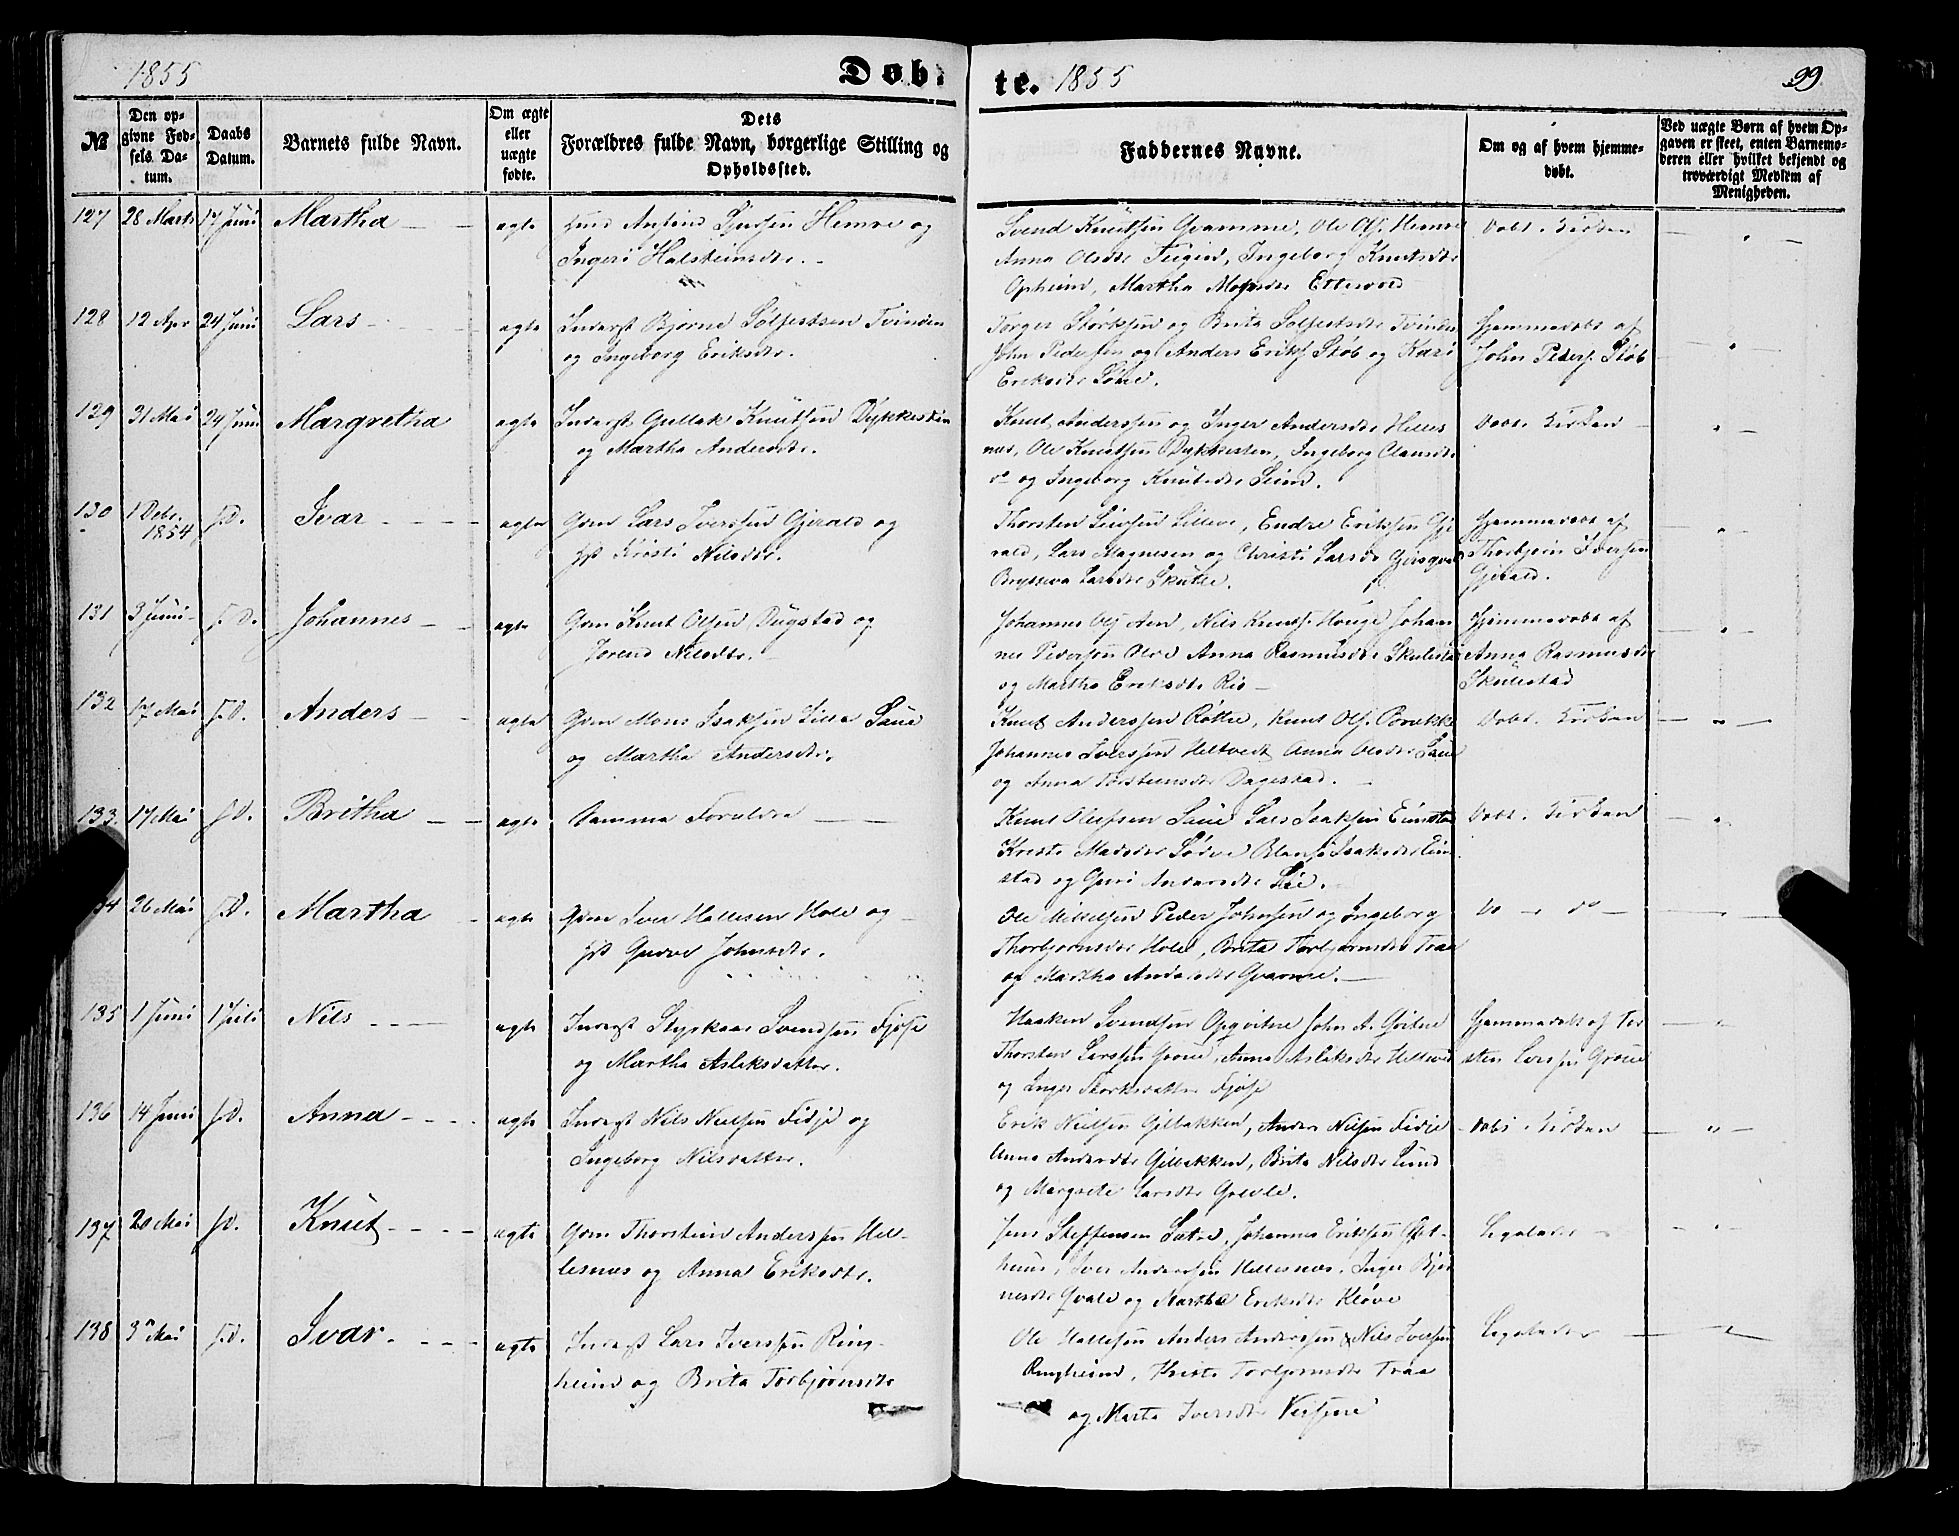 1855 Døb-
te. 1855 99.
№
Den op-
givne Fød-
sels. Da-
tum.
Daabs
Datum.
Barnets fulde Navn.
Om ægte
eller
uægte
fødte.
Dets
Forældres fulde Navn, borgerlige Stilling og
Opholdssted.
Faddernes Navne.
Om og af hvem hjemme-
døbt.
Ved uægte Børn af hvem Op-
gaven er skeet, enten Barnemo-
deren eller hvilket bekjendt og
troværdigt Medlem af
Menigheden.
127 28 Marts 17 Juni Martha ægte Huusm Anfind Sjursen Hemre og
Ingeri Halsteinsdtr.
Svend Knutsen Gvamme, Ole Ols. Hemre
Anna Olsdtr Teigen, Ingeborg Knutsdtr
Opheim, Martha Monsdtr Ettevold
Døbt i Kirken
128 12 Apr 24 Juni Lars ægte Inderst Bjørne Sølfestsen Tvinden
og Ingeborg Eriksdtr.
Torger Størksen og Brita Solfestsdtr Tvinden
John Pedersen og Anders Eriks. Støb og Kari
Eriksdtr Løne.
Hjemmedøbt af
John Peders. Støb
129 31 Mai 24 Juni Margretha ægte Inderst Gullak Knutsen Dykkesten
og Martha Andersdtr.
Knut Anderssen og Inger Andersdtr Helles
næs, Ole Knutsen Dykkesten, Ingeborg Clausdtr
do og Ingeborg Knutsdtr Seim.
Døbt i Kirken
130 1 Debr. 1854 s.D. Ivar ægte Grm Lars Iverssen Gjerald og
Hst Kristi Nilsdtr.
Thorsten Lillere, Endre Erikssen Gje
rald, Lars Magnesen og Christi Larsdtr
Brytteva Larsdtr Skutle.
Hjemmedøbt af
Thorbjørn Iverssen
Gjerald.
131 3 Juni s.D. Johannes ægte Grm Knut Olsen Dugstad og
Jørend Nilsdtr.
Johannes Ols Aen, Nils Knuts. Houge Johan
nes Pedersen Olde Anna Rasmusdtr Skulestad
og Martha Eriksdtr Rio
Hjemmedøbt af
Anna Rasmusdtr
Skulestad
132 17 Mai s.D. Anders ægte Grm Mons Isaksen Lilla Saue
og Martha Andersdtr.
Knut Anderssen Røthe, Knut Ols. Brække
Johannes Iverssen Heltvedt Anna Olsdtr Saue
og Anna Torsteinsdtr Dagestad.
Døbt i Kirken
133. 17 Mai s.D. Britha ægte Samme Forældre
Knut Olefsen Saue Lars Isaksen Eimsta
Kristi Madsdtr Isaksdtr Eim
stad og Guri Andersdtr Lie.
Døbt i Kirken
134 26 Mai s.D. Martha ægte Grm Iver Hallesen Hole og
Hst Gudve Johnsdtr.
Ole Mikelsen Peder Johnsen og Ingeborg
Thorbjørnsdtr Hole, Brita Torbjørnsdtr Traa
og Martha Andersdtr Gvarme.
Do do
135 1 Juni 1 Juli Nils ægte Inderst Styrkaar Svendsen Fjøse
og Martha Aslaksdatter.
Haaken Svendsen Opqvitne John A. Gvitne
Thorsten Larssen Groue, Anna Aslaksdtr Hellesn
og Inger Storksdatter Fjøse
Hjemmedøbt af Tor
sten Larssen Groue
136 14 Juni s.D. Anna ægte Inderst Nils Nielsen Fidje og
Ingeborg Nilsdatter.
Erik Nielsen Gilbakken, Anders Nilsen Fidje
Anna Andersdtr Gilbakken, Brita Nilsdtr Lund
og Margrete Larsdtr Grevle.
Døbt i Kirken
137 20 Mai s.D. Knut ægte Grm Thorstein Anderssen Hel-
lesnæs og Anna Eriksdtr.
Jens Steffensen Sætre, Johannes Erikssen Øst-
huus, Iver Anderssen Hellesnæs, Inger Bjør
nesdtr Qvale og Martha Eriksdtr Kløve
Ligeledes
138 3 Mai s.D. Ivar. ægte Inderst Lars Iverssen Ring-
heim og Brita Torbjørnsdtr
Ole Hallesen Anders Anderssen & Nils Iversen
Ringheim, Kristi Torbjørnsdtr Traa
og Marta Iversdtr
Ligeledes